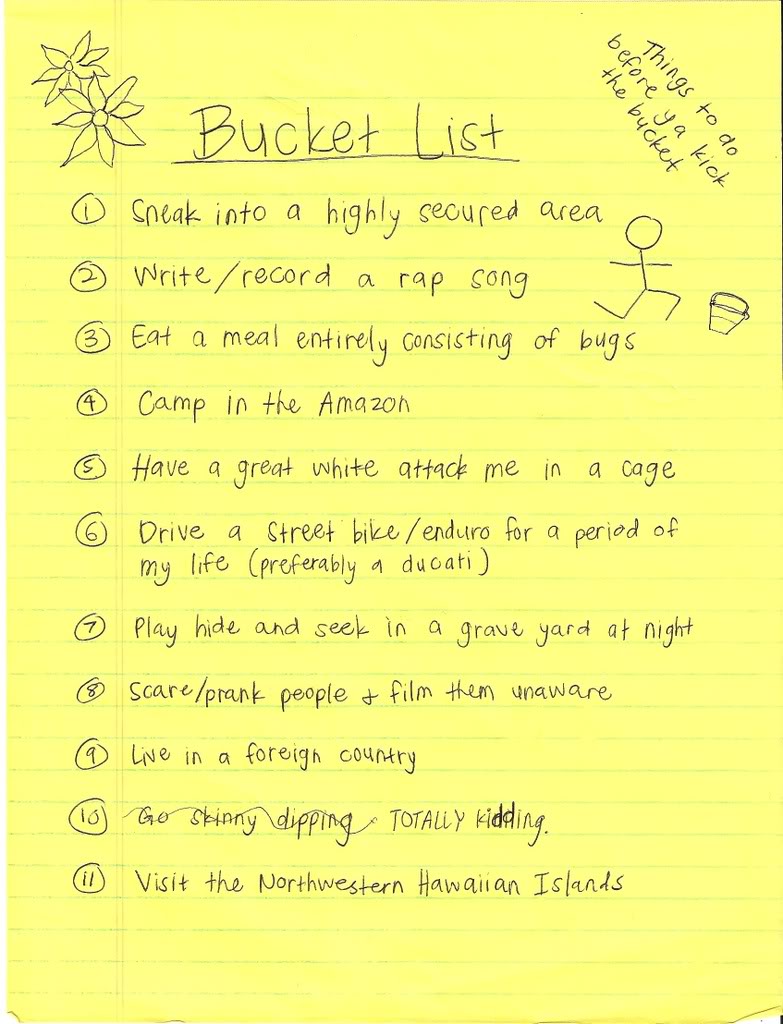 Things to do
before ya kick
the bucket
Bucket List
1 Sneak into a highly secured area
2 Write/record a rap song
3 Eat a meal entirely consisting of bugs
4 Camp in the Amazon
5 Have a great white attack me in a cage
6 Drive a street bike/enduro for a period of
my life (preferably a ducati)
7 Play hide and seek in a grave yard at night
8 Scare/prank people + film them unaware
9 Live in a foreign country
10 Go skinny dipping. TOTALLY kidding.
11 Visit the Northwestern Hawaiian Islands